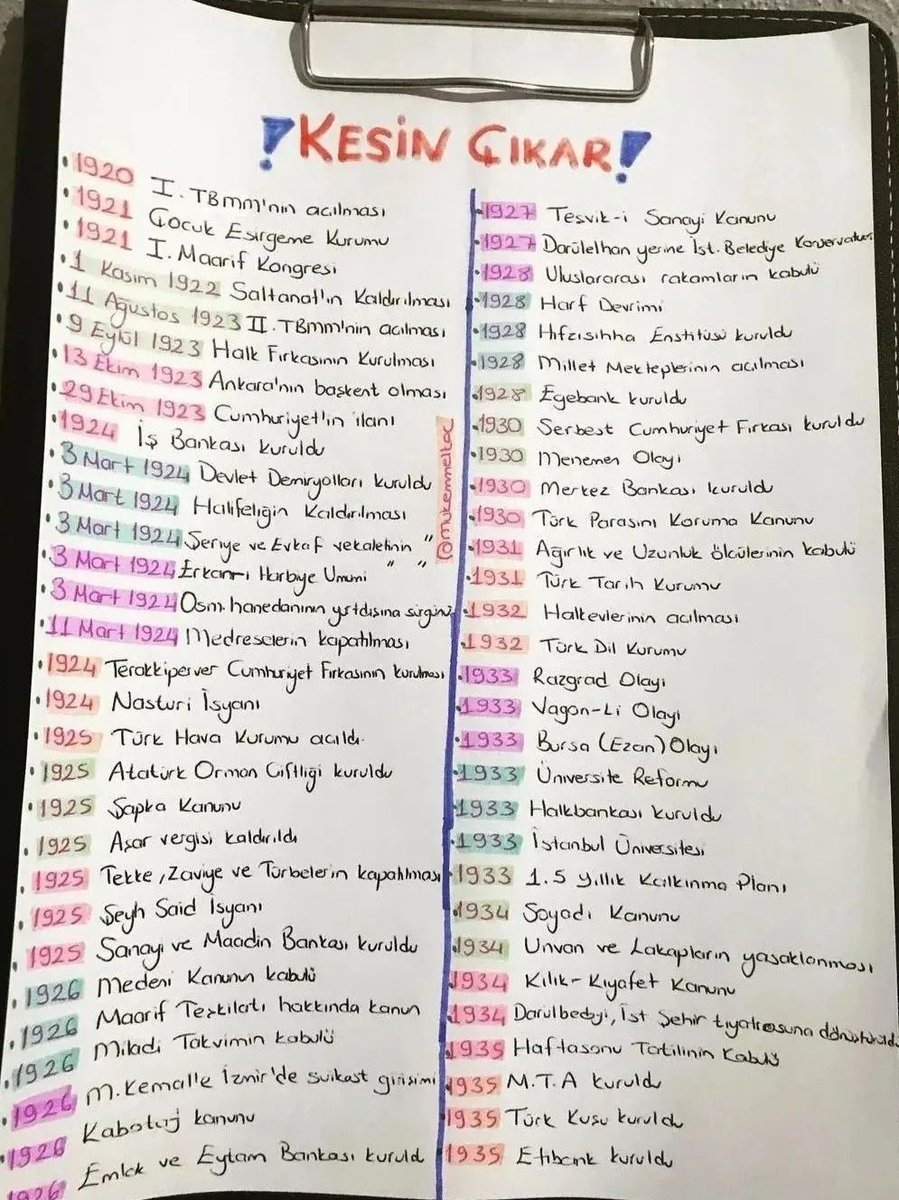 ! KESİN ÇIKAR !
• 1920 I. TBMM'nin açılması
• 1921 Çocuk Esirgeme Kurumu
• 1921 I. Maarif Kongresi
• 1 Kasım 1922 Saltanat'ın Kaldırılması
• 11 Ağustos 1923 II. TBMM'nin açılması
• 9 Eylül 1923 Halk Fırkasının Kurulması
• 13 Ekim 1923 Ankara'nın başkent olması
• 29 Ekim 1923 Cumhuriyet'in ilanı
• 1924 İş Bankası kuruldu
• 3 Mart 1924 Devlet Demiryolları kuruldu
• 3 Mart 1924 Halifeliğin Kaldırılması
• 3 Mart 1924 Şeriye ve Evkaf vekaletinin "
• 3 Mart 1924 Erkanı Harbiye Umumi " "
• 3 Mart 1924 Osm. hanedanının yrtdışına sürgünü
• 11 Mart 1924 Medreselerin kapatılması
• 1924 Terakkiperver Cumhuriyet Fırkasının kurulması
• 1924 Nasturi İsyanı
• 1925 Türk Hava Kurumu açıldı
• 1925 Atatürk Orman Çiftliği kuruldu
• 1925 Şapka Kanunu
• 1925 Aşar vergisi kaldırıldı
• 1925 Tekke, Zaviye ve Türbelerin kapatılması
• 1925 Şeyh Said İsyanı
• 1925 Sanayi ve Maadin Bankası kuruldu
• 1926 Medeni Kanunun kabulü
• 1926 Maarif Teşkilatı hakkında kanun
• 1926 Miladi Takvimin kabulü
• 1926 M. Kemal'e İzmir'de suikast girişimi
• 1926 Kabotaj kanunu
1926 Emlak ve Eytam Bankası kuruld
@mukemmeltac
• 1927 Teşvik-i Sanayi Kanunu
• 1927 Darülelhan yerine İst. Belediye Konservatuarı
• 1928 Uluslararası rakamların kabulü
• 1928 Harf Devrimi
• 1928 Hıfzısıhha Enstitüsü kuruldu
• 1928 Millet Mekteplerinin açılması
• 1928 Egebank kuruldu
• 1930 Serbest Cumhuriyet Fırkası kuruldu
• 1930 Menemen Olayı
• 1930 Merkez Bankası kuruldu
• 1930 Türk Parasını Koruma Kanunu
• 1931 Ağırlık ve Uzunluk ölçülerinin kabulü
• 1931 Türk Tarih Kurumu
• 1932 Halkevlerinin açılması
• 1932 Türk Dil Kurumu
• 1933 Razgrad Olayı
• 1933 Vagon-Li Olayı
• 1933 Bursa (Ezan) Olayı
• 1933 Üniversite Reformu
• 1933 Halkbankası kuruldu
• 1933 İstanbul Üniversitesi
• 1933 1. 5 Yıllık Kalkınma Planı
• 1934 Soyadı Kanunu
• 1934 Unvan ve Lakapların yasaklanması
• 1934 Kılık-Kıyafet Kanunu
• 1934 Darulbedayi, İst Şehir tiyatrosuna dönüştürüldü
• 1935 Haftasonu Tatilinin Kabulü
• 1935 M.T.A kuruldu
• 1935 Türk Kuşu kuruldu
• 1935 Etibank kuruldu